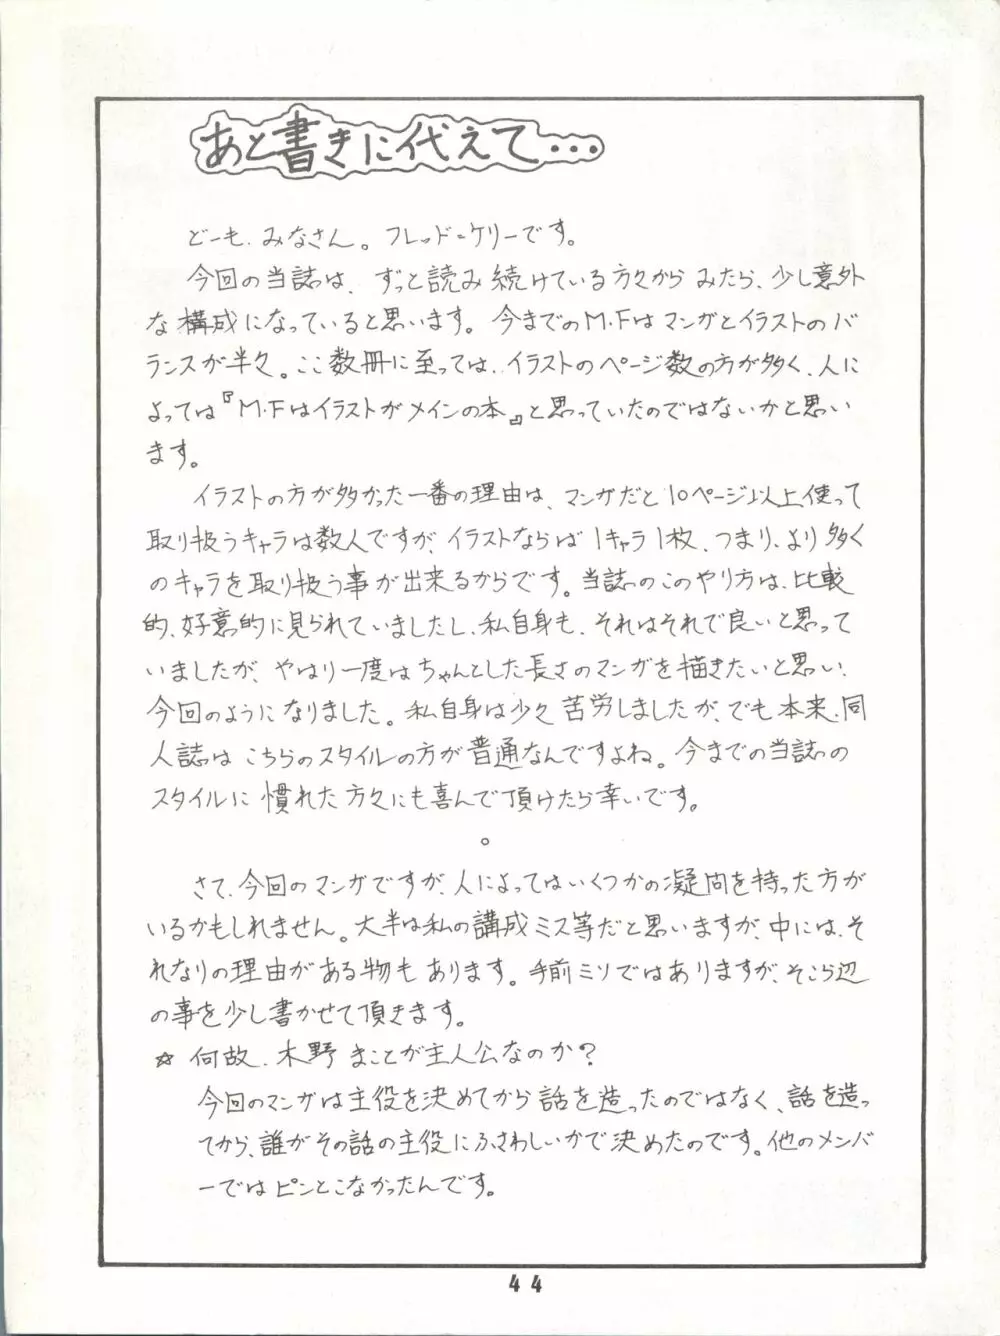 あと書きに代えて…
どーも、みなさん。フレッド=ケリーです。
今回の当誌は、ずっと読み続けている方々からみたら、少し意外
な構成になっていると思います。今までのM.Fはマンガとイラストのバ
ランスが半々。ここ数冊に至っては、イラストのページ数の方が多く、人に
よっては『M.Fはイラストがメインの本』と思っていたのではないかと思い
ます。
イラストの方が多かった一番の理由は、マンガだと10ページ以上使って
取り扱うキャラは数人ですが、イラストならば1キャラ1枚、つまり、より多く
のキャラを取り扱う事が出来るからです。当誌のこのやり方は、比較
的、好意的に見られていましたし、私自身も、それはそれで良いと思って
いましたが、やはり一度はちゃんとした長さのマンガを描きたいと思い、
今回のようになりました。私自身は少々苦労しましたが、でも本来、同
人誌はこちらのスタイルの方が普通なんですよね。今までの当誌の
スタイルに慣れた方々にも喜んで頂けたら幸いです。
○
さて、今回のマンガですが、人によってはいくつかの凝問を持った方が
いるかもしれません。大半は私の講成ミス等だと思いますが、中には、そ
れなりの理由がある物もあります。手前ミソではありますが、そこら辺
の事を少し書かせて頂きます。
☆何故、木野まことが主人公なのか?
今回のマンガは主役を決めてから話を造ったのではなく、話を造っ
てから、誰がその話の主役にふさわしいかで決めたのです。他のメンバ
ーではピンとこなかったんです。
44